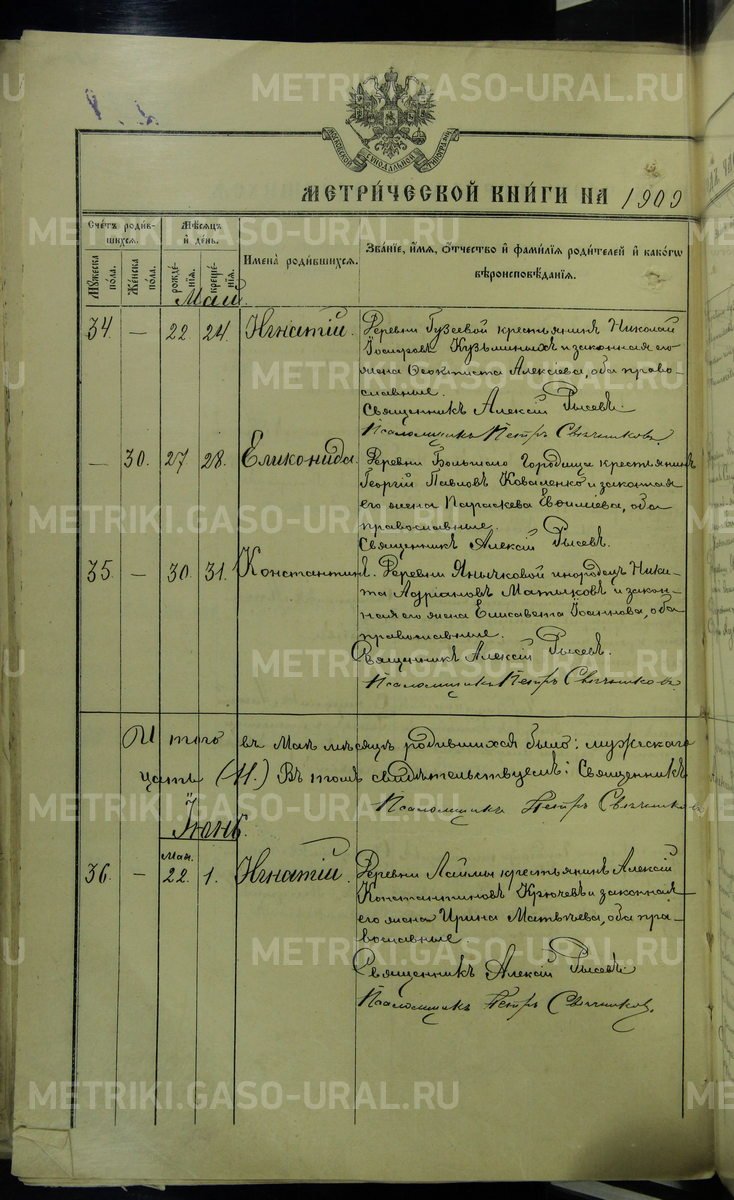 МОСКОВСКОЙ СѴНОДАЛЬНОЙ ТИПОГРАФІИ
МЕТРИ́ЧЕСКОЙ КНИ́ГИ НА 1909
Счетъ роди́вшихся.
Мѣсяцъ и день.
Имена̀ роди́вшихся.
Зва́нїе, и́мѧ, о́тчество и҆ фами́лїѧ роди́телей и҆ како́гѡ вѣроисповѣ́данїѧ.
Мꙋ́жеска по́ла.
Же́нска по́ла.
рожде́нїѧ.
креще́нїѧ.
Май.
34. — 22. 24. Игнатій. Деревни Гузеевой крестьянинъ Николай
Іосифовъ Кузьминыхъ и законная его
жена Ѳеоктиста Алексіева, оба право-
славные.
Священникъ Алексій Рысевъ.
Псаломщикъ Петръ Свѣчниковъ.
— 30. 27. 28. Еликонида. Деревни Большаго Городища крестьянинъ
Георгій Павловъ Коваленко и законная
его жена Параскева Евѳиміева, оба
православные.
Священникъ Алексій Рысевъ.
35. — 30. 31. Константинъ. Деревни Янычковой инородецъ Ники-
та Адріановъ Матыковъ и закон-
ная его жена Елисавета Іоаннова, оба
православные.
Священникъ Алексій Рысевъ.
Псаломщикъ Петръ Свѣчниковъ.
Итого въ Маѣ мѣсяцѣ родившихся было: мужскаго
цать (11.) Въ томъ свидѣтельствуемъ: Священникъ
Псаломщикъ Петръ Свѣчниковъ
Іюнь.
Мая.
36. — 22. 1. Игнатій. Деревни Лаймы крестьянинъ Алексій
Константиновъ Крючевъ и законная
его жена Ирина Матвѣева, оба пра-
вославные.
Священникъ Алексій Рысевъ.
Псаломщикъ Петръ Свѣчниковъ.
METRIKI.GASO-URAL.RU